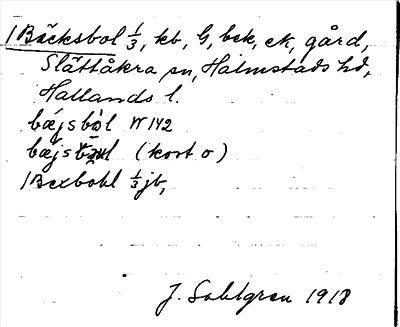 1 Bäcksbol 1/3, kb, G, bek, eK, gård,
Slättåkra sn, Halmstads hd,
Hallands l.
bæjsbòl W 142
bæjs (kort o)
1 Bexbohl 1/3 jb,
J. Sahlgren 1918